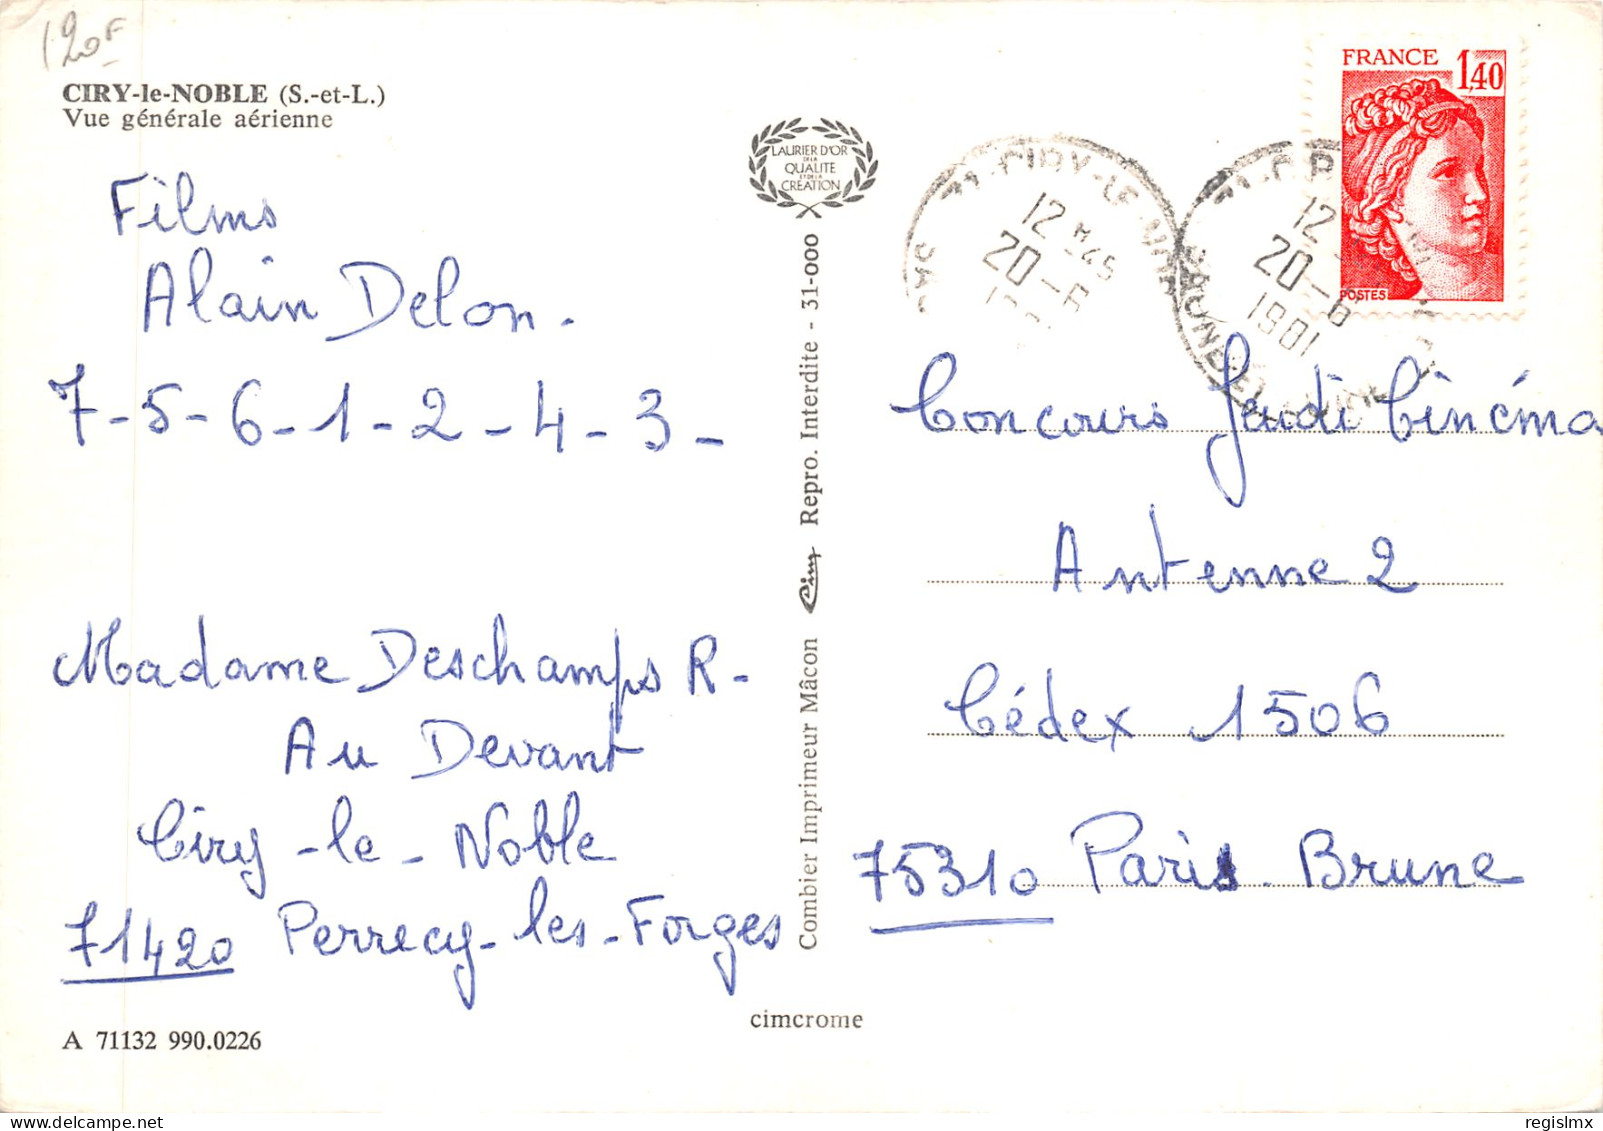 120F
CIRY-le-NOBLE (S.-et-L.)
Vue générale aérienne
Films
Alain Delon.
7-5-6-1-2-4-3-
Madame Deschamps R-
Au Devant
Ciry-le-Noble
71420 Perrecy-les-Forges
A 71132 990.0226
LAURIER D'OR
DE LA
QUALITE
ET DE LA
CREATION
Combier Imprimeur Mâcon Cim Repro. Interdite - 31-000
cimcrome
71-CIRY-LE-NO
12 H45
20-6
12
20-6
1981
SAONE-ET-LOIRE
FRANCE 1,40
POSTES
Concours Jeudi Cinéma
Antenne 2
Cédex 1506
75310 Paris Brune
delcampe.net
regislmx